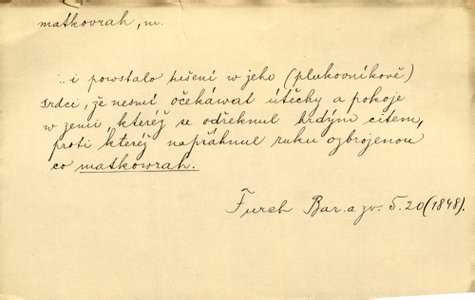 matkovrah, m.
.. i powstalo tušení w jeho (plukovníkově)
srdci, že nesmí očekáwat útěchy a pokoje
w zemi, kteréž se odřeknul hrdým citem,
proti kteréž napřáhnul ruku ozbrojenou
co matkowrah.
Furch Bar. a zv. 5. 20 (1848).